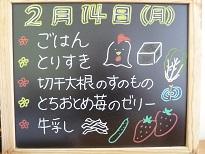 2月14日(月)
ごはん
とりすき
切干大根のすのもの
とちおとめ苺のゼリー
牛乳